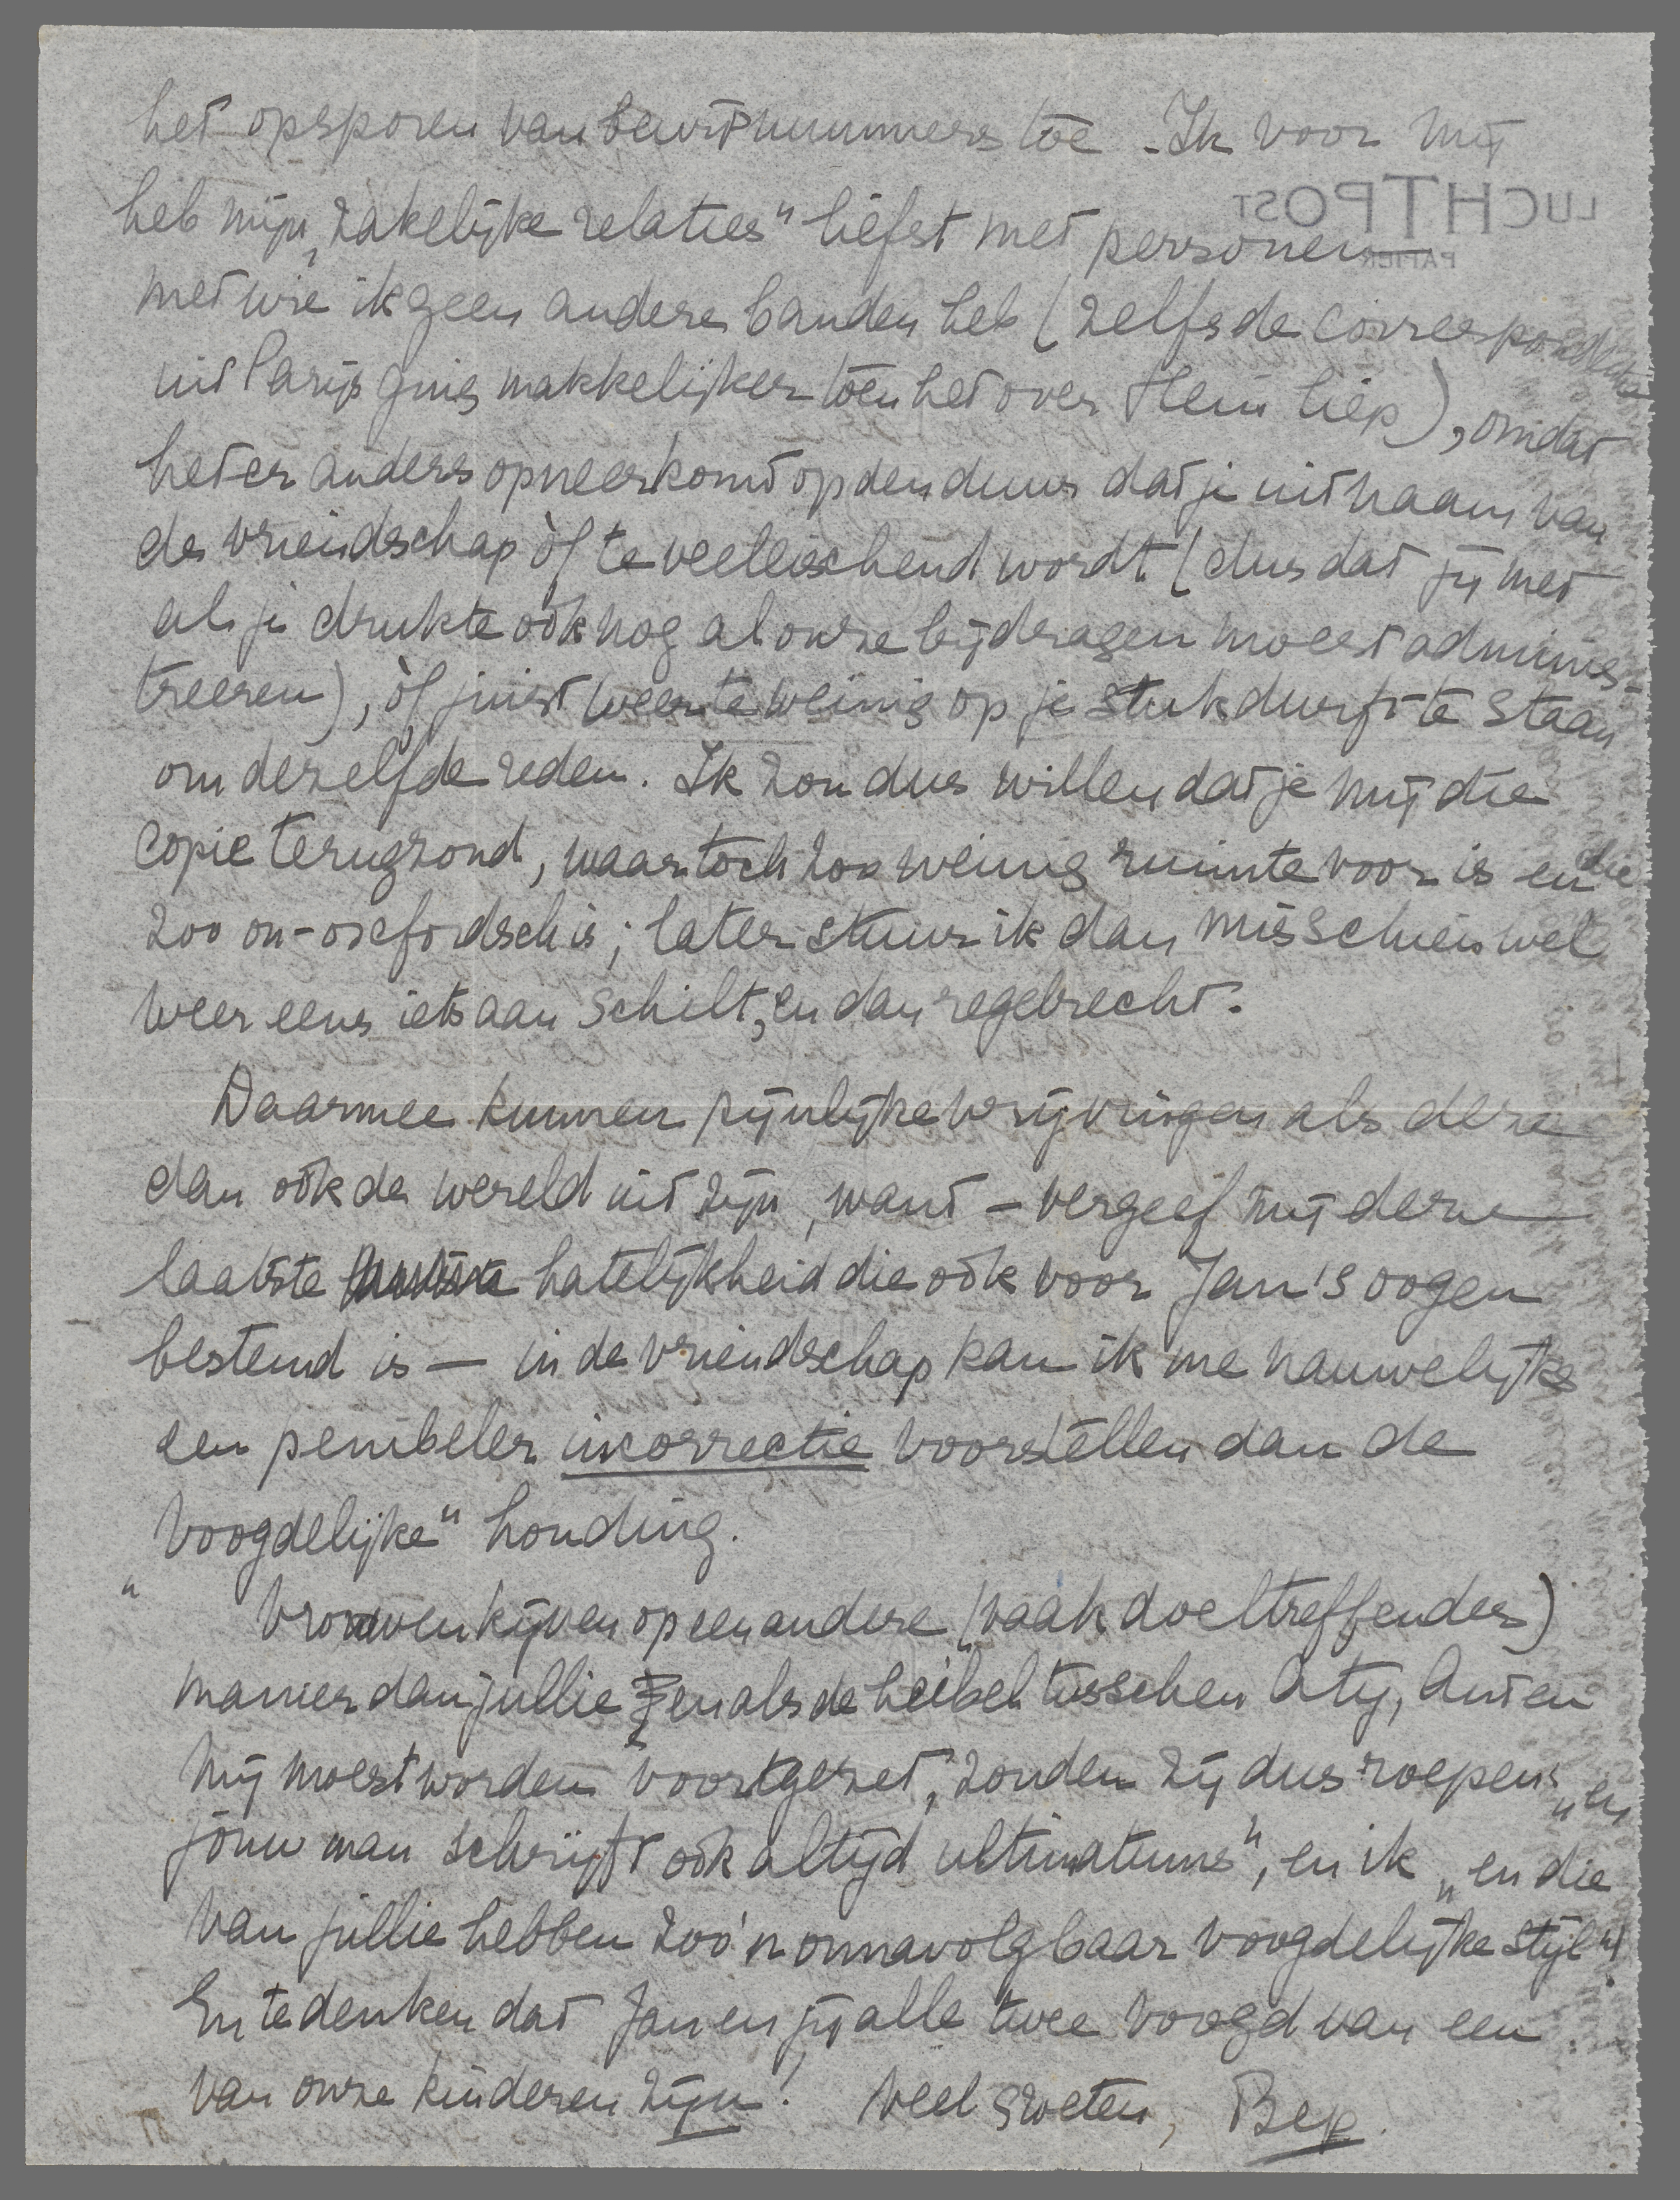 het opsporen van bewijsnummers toe. - Ik voor mij
LUCHTPOST
PAPIER
heb mijn „zakelijke relaties" liefst met personen
met wie ik geen andere banden heb (zelfs de correspondentie
uit Parijs ging makkelijker toen het over Hein liep), omdat
het er anders op neerkomt op den duur dat je uit naam van
de vriendschap òf te veeleischend wordt (dus dat jij met
al je drukte ook nog al onze bijdragen moest adminis-
treeren), òf juist weer te weinig op je stuk durft te staan
om dezelfde reden. Ik zou dus willen dat je mij die
copie terugzond, waar toch zoo weinig ruimte voor is en die
zoo on-oxfordsch is; later stuur ik dan misschien wel
weer eens iets aan Schilt, en dan regelrecht.
Daarmee kunnen pijnlijke wrijvingen als deze
dan ook de wereld uit zijn, want – vergeef mij deze
laatste hatelijkheid die ook voor Jan's oogen
bestemd is — in de vriendschap kan ik me nauwelijks
een penibeler incorrectie voorstellen dan de
„voogdelijke" houding.
Vrouwen kijven op een andere (vaak doeltreffender)
manier dan jullie en als de heibel tusschen Aty, Ant en
mij moest worden voortgezet, zouden zij dus roepen: „en
jouw man schrijft ook altijd ultimatums", en ik „en die
van jullie hebben zoo'n onnavolgbaar voogdelijke stijl"!
En te denken dat Jan en jij alle twee voogd van een
van onze kinderen zijn! Veel groeten, Bep.